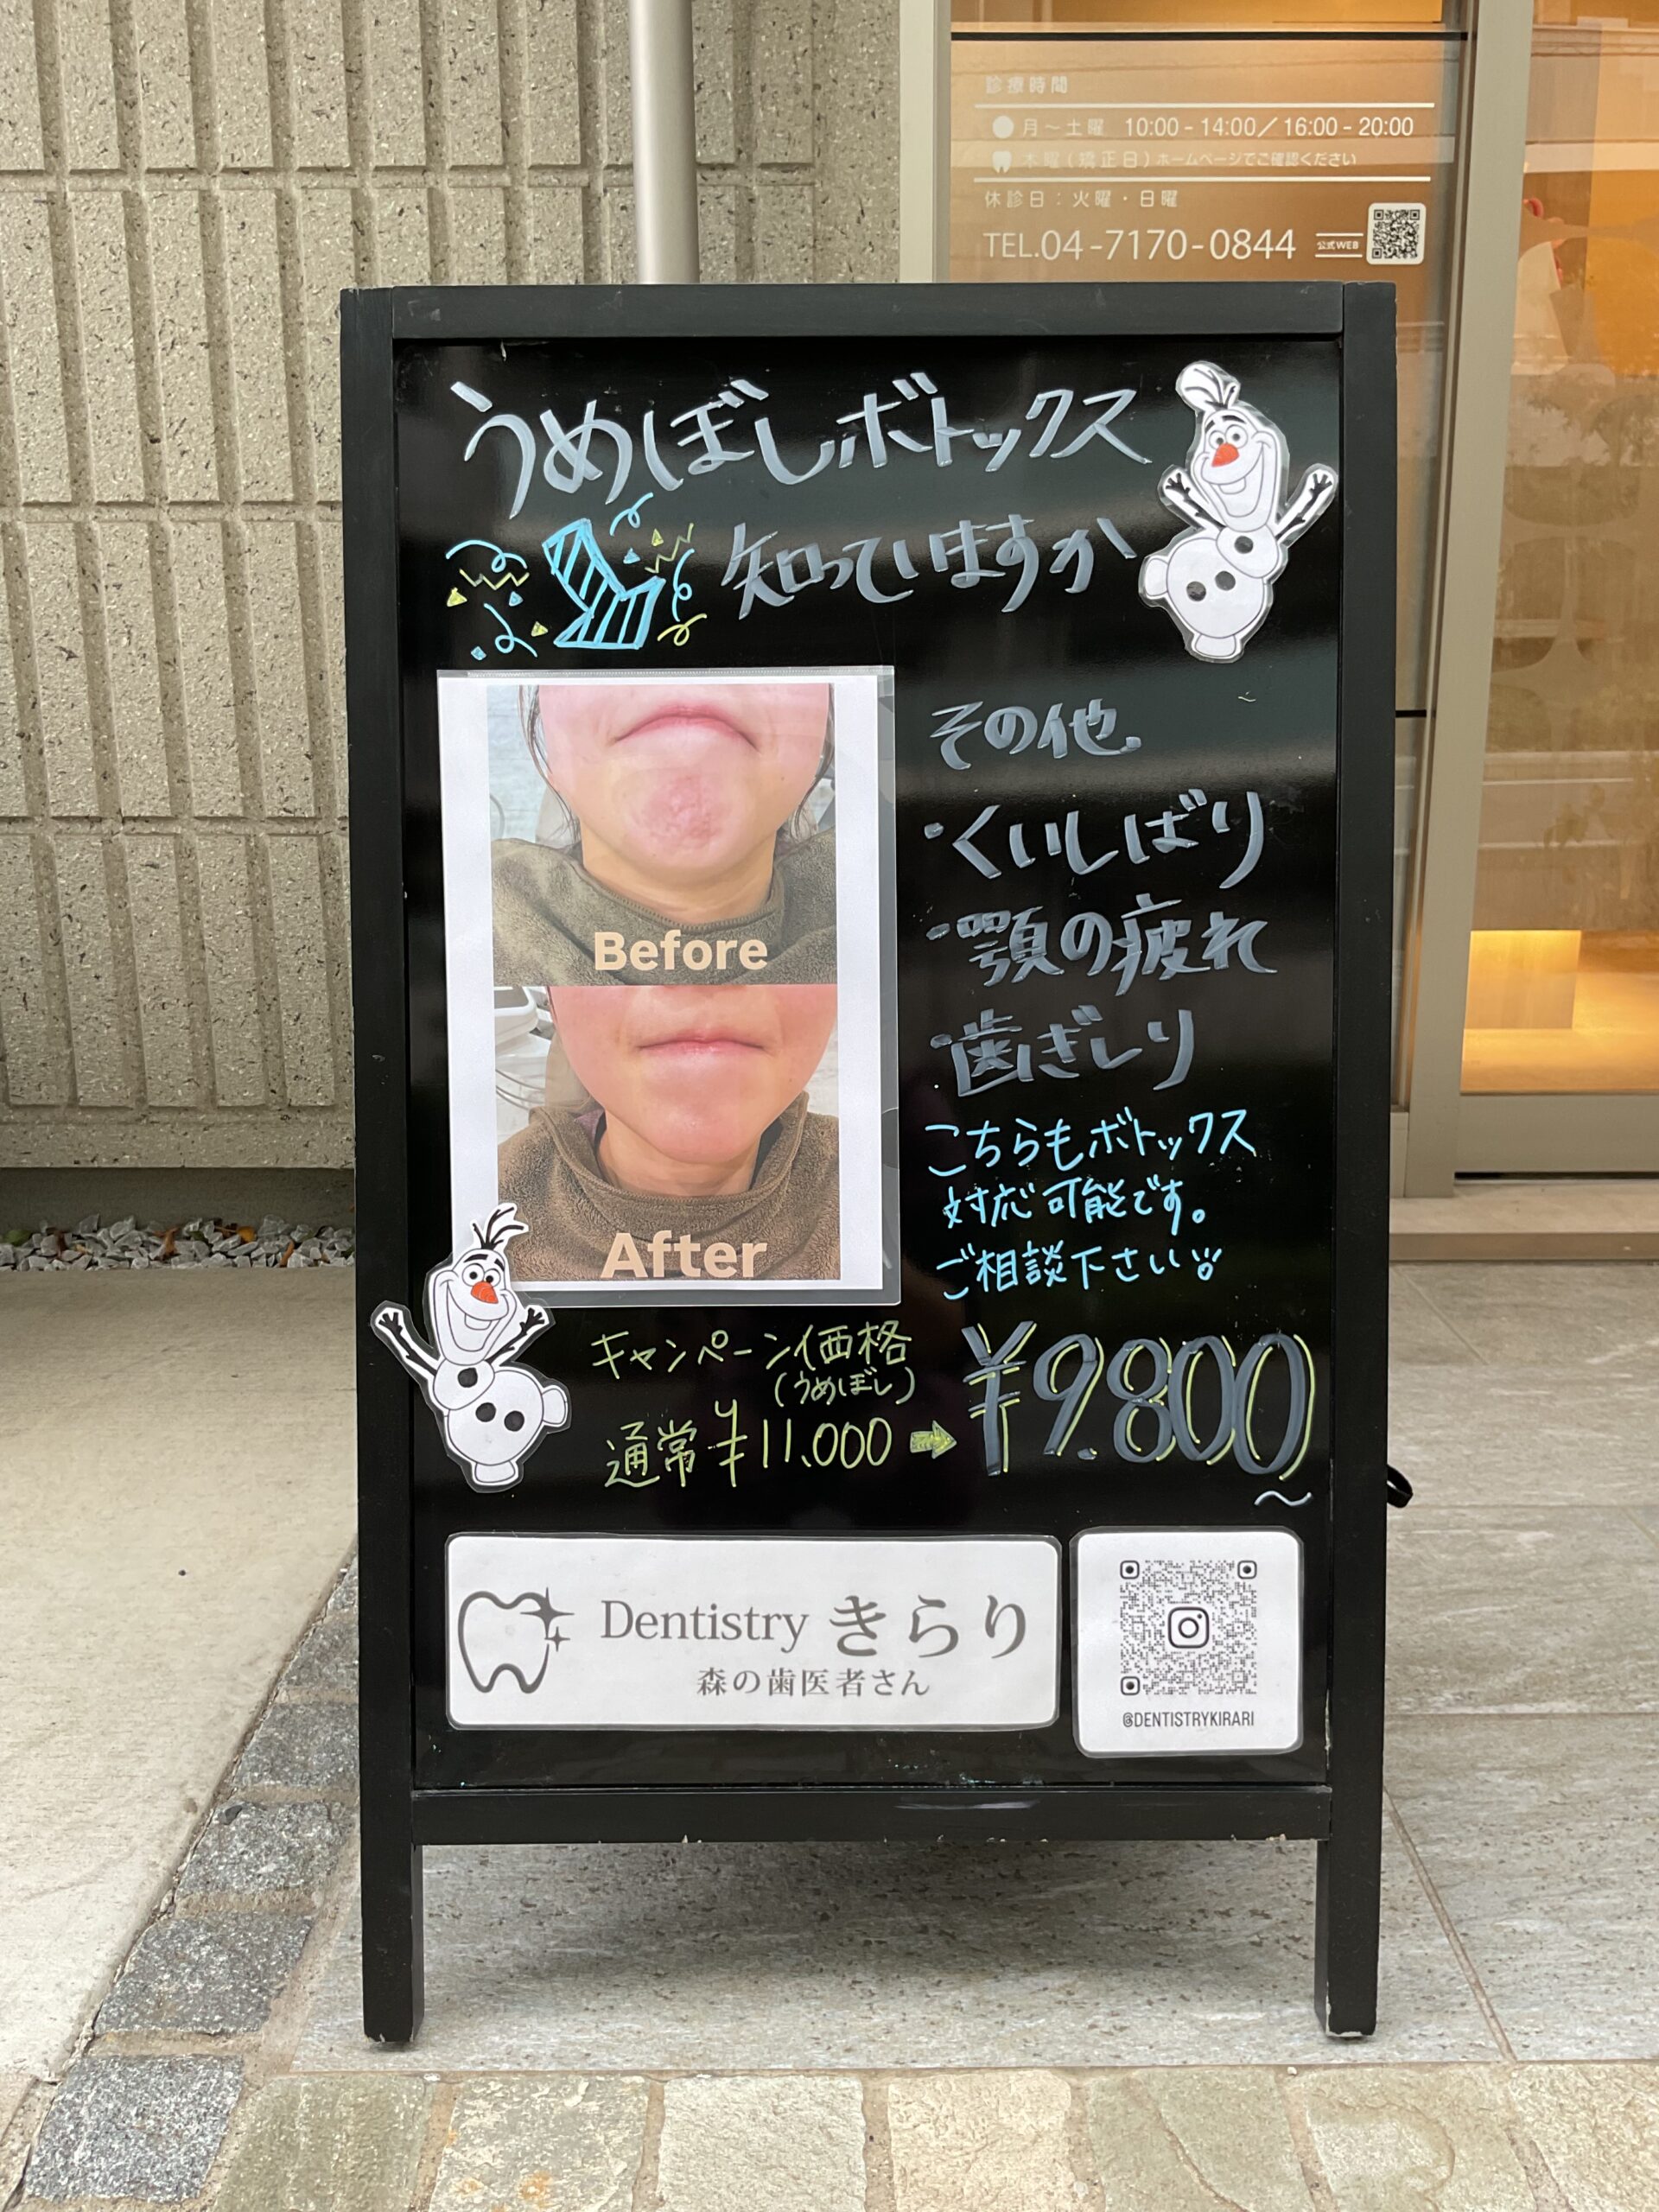 診療時間
月〜土曜 10:00-14:00/16:00-20:00
木曜(矯正日)ホームページでご確認ください
休診日:火曜・日曜
TEL.04-7170-0844 公式WEB
うめぼしボトックス
知っていますか
Before
After
その他
・くいしばり
・顎の疲れ
・歯ぎしり
こちらもボトックス
対応可能です。
ご相談下さい
キャンペーン価格
(うめぼし)
通常¥11.000 ➡ ¥9.800
〜
Dentistry きらり
森の歯医者さん
@DENTISTRYKIRARI